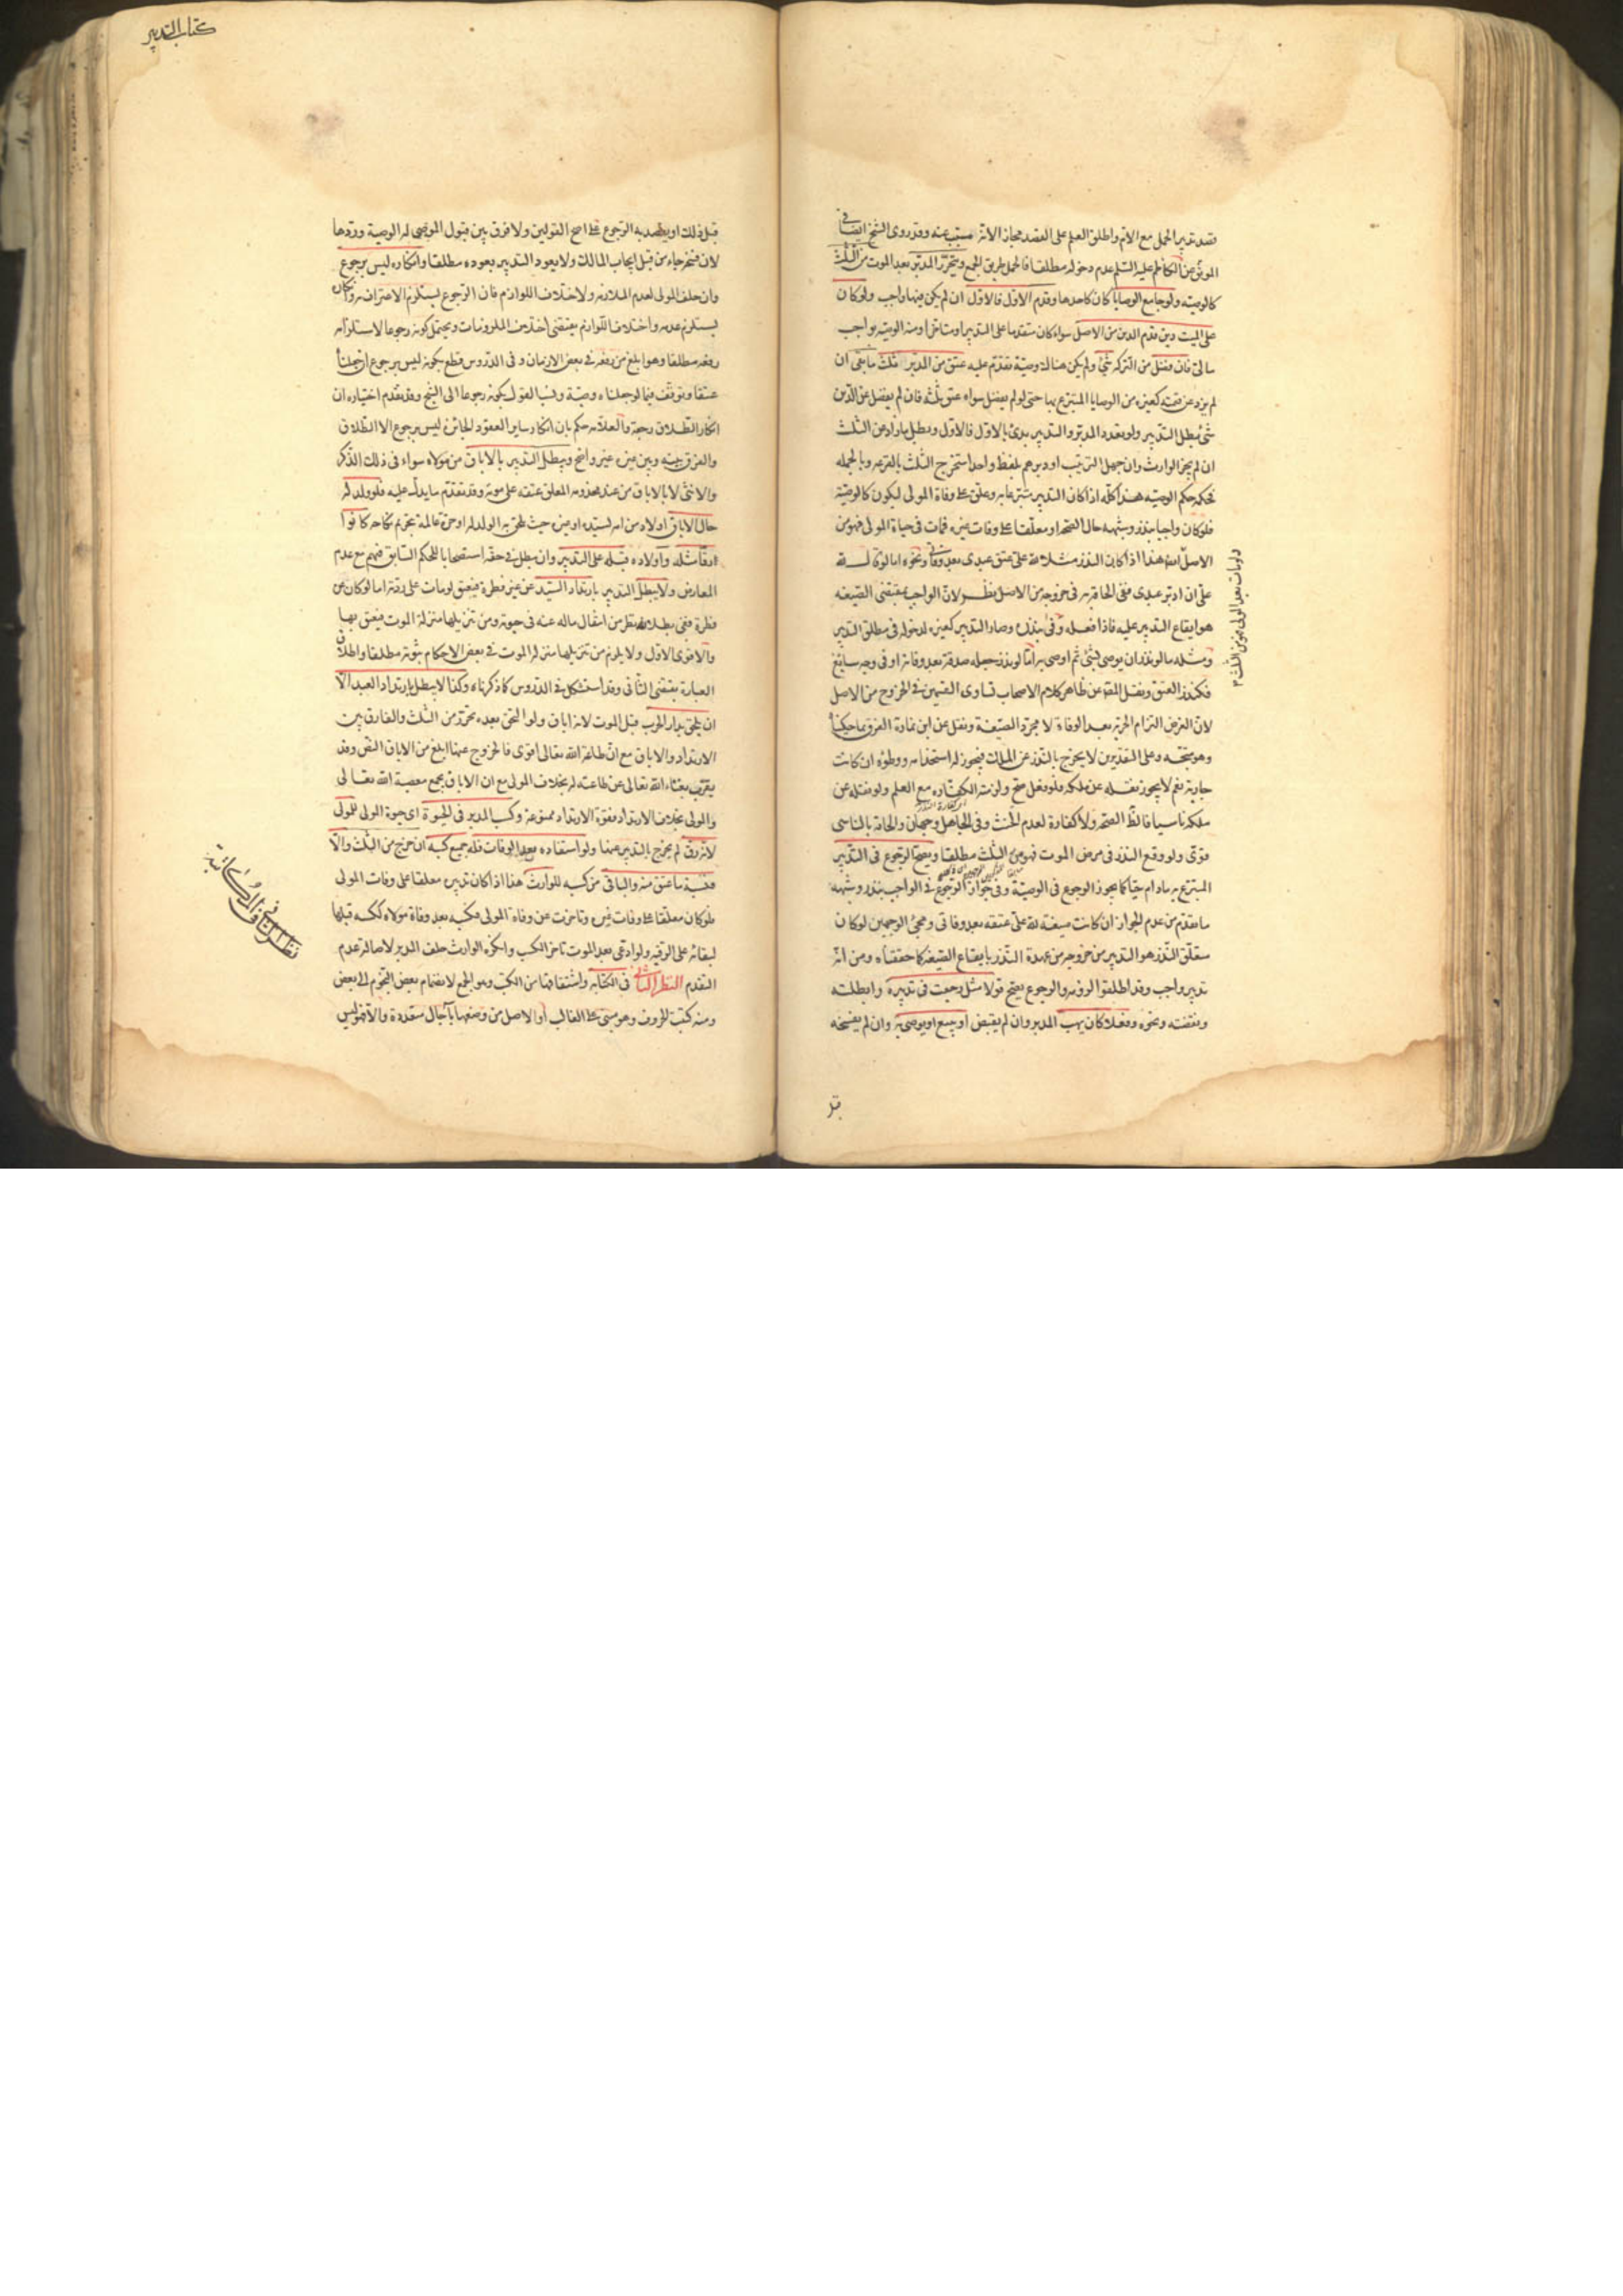 قصد تدبير الحمل مع الام واطلق العلم على القصد مجازا لانه مسبب عنه وقد روى الشيخ ايضا في
الموثق عن الكاظم عليه السلم عدم دخوله مطلقا فالحمل طريق الجمع ويتحرر المدبر بعد الموت من الثلث
كالوصية ولو جامع الوصايا كان كاحدها وقدم الاول فالاول ان لم يكن فيها واجب ولو كان
على الميت دين قدم الدين من الاصل سواء كان متقدما على التدبير او متاخرا ومنه الوصية بواجب
مالى فان فضل من التركة شئ ولم يكن هناك وصية تقدم عليه عتق من المدبر ثلث ما بقى ان
لم يزد عن قيمته كغيره من الوصايا المتبرع بها حتى لو لم يفضل سواه عتق ثلثه فان لم يفضل عن الدين
شئ بطل التدبير ولو تعدد المدبر والتدبير بدئ بالاول فالاول وبطل ما زاد عن الثلث
ان لم يجز الوارث وان جهل الترتيب او دبرهم بلفظ واحد استخرج الثلث بالقرعة وبالجملة
فحكمه حكم الوصية هذا كله اذا كان التدبير متبرعا به وعلق على وفاة المولى ليكون كالوصية
فلو كان واجبا بنذر وشبهه حال الصحة او معلقا على وفات غيره فمات في حياة المولى فهو من
الاصل هذا اذا كان النذر مثلا لله على عتق عبدى بعد وفاتى ونحوه اما لو قال لله
على ان ادبر عبدى ففى الحاقه به فى خروجه من الاصل نظر لان الواجب بمقتضى الصيغة
هو ايقاع التدبير عليه فاذا فعله وفى بنذره وصار التدبير كغيره لدخوله فى مطلق التدبير
ومثله ما لو نذر ان يوصى بشئ ثم اوصى به اما لو نذر جعله صدقة بعد وفاته او فى وجه سايغ
فكنذر العتق ونقل المص عن ظاهر كلام الاصحاب تساوى القسمين فى الخروج من الاصل
لان الغرض التزام الحرية بعد الوفاة لا مجرد الصيغة ونقل عن ابن نما ره الفرق بما حكيناه
وهو متجه وعلى التقديرين لا يخرج بالنذر عن الملك فيجوز له استخدامه ووطؤه ان كانت
جارية نعم لا يجوز نقله عن ملكه فلو فعل صح ولزمته الكفارة مع العلم ولو نقله عن
ملكه ناسيا فالظ الصحة ولا كفارة لعدم الحنث وفى الجاهل وجهان والحاقه بالناسى
قوى ولو وقع النذر فى مرض الموت فهو من الثلث مطلقا ويصح الرجوع فى التدبير
المتبرع به ما دام حيا كما يجوز الرجوع فى الوصية وفى جواز الرجوع فى الواجب بنذر وشبهه
ما تقدم من عدم الجواز ان كانت صيغته لله على عتقه بعد وفاتى ومجئ الوجهين لو كان
متعلق النذر هو التدبير من خروجه من عهدة النذر بايقاع الصيغة كما حققناه ومن انه
تدبير واجب وقد اطلقوا لزومه والرجوع يصح قولا مثل رجعت فى تدبيره وابطلته
ونقضته ونحوه وفعلا كان يهب المدبر وان لم يقبض او يبيع او يوصى به وان لم يفسخه
ولو مات بعد المولى فهو من الثلث
كتاب التدبير
قبل ذلك او يقصد به الرجوع على اصح القولين ولا فرق بين قبول الموصى له الوصية وردها
لان فسخه جاء من قبل ايجاب المالك ولا يعود التدبير بعوده مطلقا وانكاره ليس برجوع
وان حلف المولى لعدم الملازمة ولاختلاف اللوازم فان الرجوع يستلزم الاعتراف به وانكاره
يستلزم عدمه واختلاف اللوازم يقتضى اختلاف الملزومات ويحتمل كونه رجوعا لاستلزامه
رفعه مطلقا وهو ابلغ من رفعه فى بعض الازمان وفى الدروس قطع بكونه ليس برجوع ان جعلناه
عتقا وتوقف فيما لو جعلناه وصية ونسب القول بكونه رجوعا الى الشيخ وقد تقدم اختياره ان
انكار الطلاق رجعة والعلامة حكم بان انكار ساير العقود الجائزة ليس برجوع الا الطلاق
والفرق بينه وبين غيره غير واضح ويبطل التدبير بالاباق من مولاه سواء فى ذلك الذكر
والانثى لا بالاباق من عند مخدومه المعلق عتقه على موته وقد تقدم ما يدل عليه فلو ولد له
حال الاباق اولاد من امة لسيده او غيره حيث يلحق به الولد له او حرة عالمة بتحريم نكاحه كانوا
ارقا مثله واولاده قبله على التدبير وان بطل فى حقه استصحابا للحكم السابق فيهم مع عدم
المعارض ولا يبطل التدبير بارتداد السيد عن غير فطرة فيعتق لو مات على ردته اما لو كان عن
فطرة ففى بطلانه نظر من انتقال ماله عنه فى حيوته ومن تنزيلها منزلة الموت فيعتق بها
والاقوى الاول ولا يلزم من تنزيلها منزلة الموت فى بعض الاحكام ثبوته مطلقا واطلاق
العبارة يقتضى الثانى وقد استشكل فى الدروس كما ذكرناه وكذا لا يبطل بارتداد العبد الا
ان يلتحق بدار الحرب قبل الموت لانه اباق ولو التحق بعده تحرر من الثلث والفارق بين
الارتداد والاباق مع ان طاعة الله تعالى اقوى فالخروج عنها ابلغ من الاباق النص وقد
يقرب بغناء الله تعالى عن طاعته له بخلاف المولى مع ان الاباق يجمع معصية الله تعالى
والمولى بخلاف الارتداد فقوة الارتداد ممنوعة وكسب المدبر فى الحيوة اى حيوة المولى للمولى
لانه رق لم يخرج بالتدبير عنها ولو استفاده بعد الوفات فله جميع كسبه ان خرج من الثلث والا
فنسبة ما عتق منه والباقى من كسبه للوارث هذا اذا كان تدبيره معلقا على وفات المولى
فلو كان معلقا على وفات غيره وتاخرت عن وفاة المولى فكسبه بعد وفاة مولاه ككسبه قبلها
لبقائه على الرقية ولو ادعى بعد الموت تاخر الكسب وانكره الوارث حلف المدبر لاصالة عدم
التقدم النظر الثانى فى الكتابة واشتقاقها من الكتب وهو الجمع لانضمام بعض النجوم الى بعض
ومنه كتبت الحروف وهو مبنى على الغالب او الاصل من وضعها بآجال متعددة والا فهو ليس